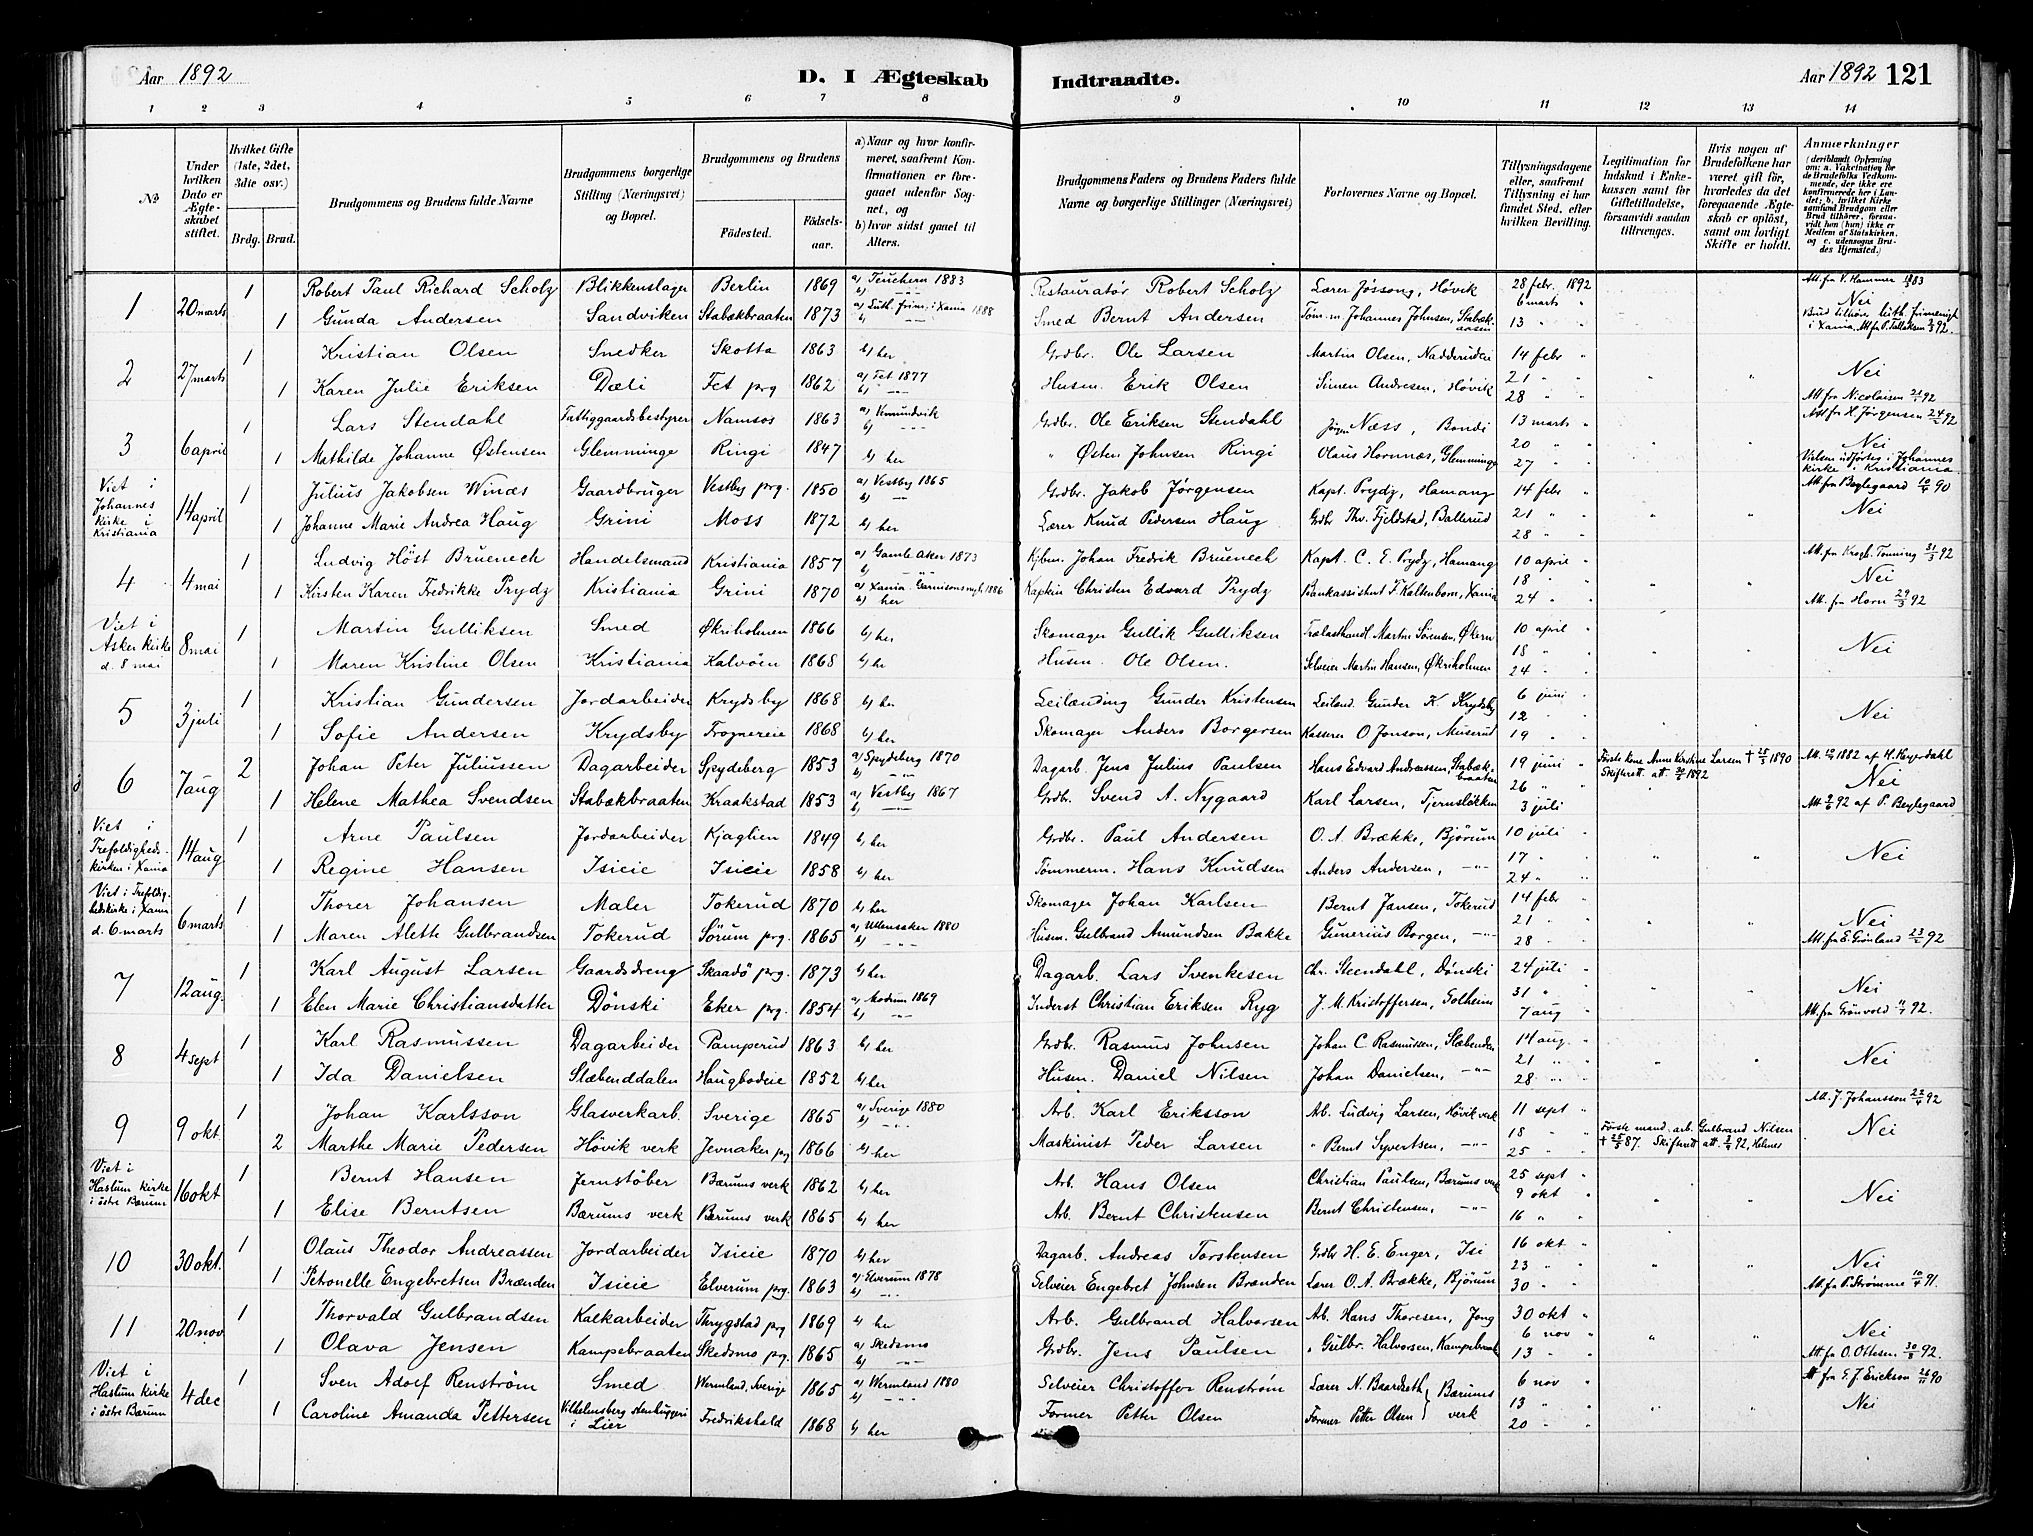 Aar 1892 D. I Ægteskab Indtraadte. Aar 1892 121
1 2 3 4 5 6 7 8 9 10 11 12 13 14
No
Under hvilken Dato er Ægteskabet stiftet.
Hvilket Gifte (1ste, 2det, 3die osv.)
Brdg. Brud.
Brudgommens og Brudens fulde Navne
Brudgommens borgerlige Stilling (Næringsvei) og Bopæl.
Brudgommens og Brudens
Fødested. Fødselsaar.
a) Naar og hvor konfirmeret, saafremt Konfirmationen er foregaaet udenfor Sognet, og
b) hvor sidst gaaet til Alters.
Brudgommens Faders og Brudens Faders fulde Navne og borgerlige Stillinger (Næringsvei)
Forlovernes Navne og Bopæl.
Tillysningsdagene eller, saafremt Tillysning ei har fundet Sted, efter hvilken Bevilling.
Legitimation for Indskud i Enkekassen samt for Giftetilladelse, forsaavidt saadan tiltrænges.
Hvis nogen af Brudefolkene har været gift før, hvorledes da det foregaaende Ægteskab er opløst, samt om lovligt Skifte er holdt.
Anmerkninger (deriblandt Oplysning om: a. Vakcination for de Brudefolks Vedkommende, der ikke ere konfirmerede her i Landet; b. hvilket Kirkesamfund Brudgom eller Brud tilhører, forsaavidt han (hun) ikke er Medlem af Statskirken, og c. udensogns Brudes Hjemsted.)
1 20 marts 1 Robert Paul Richard Scholz Blikkenslager Berlin 1869 a) Teuchern 1883 b) -"- Restauratør Robert Scholz Lærer Jøssang, Høvik 28 febr. 1892 Att. fra V. Hammer 83
1 Gunda Andersen Sandviken Stabækbraaten 1873 a) Luth. frim. i Xania 1888 b) -"- Smed Bernt Andersen Tøm.m. Johannes Johnsen, Stabækaasen 6 marts " 13 " " Nei Brud tilhører luth. frimenigh. i Xania. Att fra P. Tallaksen 92
2 27 marts 1 Kristian Olsen Snedker Skotta 1863 b) her Grdbr. Ole Larsen Martin Olsen, Nadderudei 14 febr " Nei
1 Karen Julie Eriksen Dæli Fet prg 1862 a) Fet 1877 b) -"- Husm. Erik Olsen Simen Andresen, Høvik 21 " " 28 " " Att fra Nicolaisen 92
3 6 april 1 Lars Stendahl Fattiggaardsbestyrer Namsos 1863 a) b) -"- Grdbr. Ole Eriksen Stendahl Jørgen Næss, Bondi 13 marts " Att fra H. Jørgensen 92
1 Mathilde Johanne Østensen Glemminge Ringi 1847 b) her " Østen Johnsen Ringi Olaus Hornnæs, Glemminge 20 " " 27 " " Nei
Viet i Johannes kirke i Kristiania 14 april 1 Julius Jakobsen Winæs Gaardbruger Vestby prg. 1850 a) Vestby 1865 b) -"- Grdbr. Jakob Jørgensen Kapt. Prydz, Hamang 14 febr " Vielsen udførtes i Johannes kirke i Kristiania. Att fra Beglegaard 10/4 90
1 Johanne Marie Andrea Haug Grini Moss 1872 b) her Lærer Knud Pedersen Haug Grdbr Thv. Fjeldstad, Ballerud 21 " " 28 " " Nei
4 4 mai 1 Ludvig Høst Bruenech Handelsmand Kristiania 1857 a) Gamle Aker 1873 b) -"- Kjbm. Johan Fredrik Bruenech Kapt. C. E. Prydz, Hamang 10 april " Att. fra Krogh-Tonning 31/3 92
1 Kirsten Karen Fredrikke Prydz Kristiania Grini 1870 a) Xania Garnisonsmgh. 1886 b) her Kaptein Christen Edvard Prydz Bankassistent F. Kaltenborn, Xania 18 " " 24 " " Nei Att. fra Horn 29/3 92
Viet i Asker kirke d. 8 mai 8 mai 1 Martin Gulliksen Smed Økriholmen 1866 b) her Skomager Gullik Gulliksen Trælasthandl. Martin Sørensen, Økern 10 april " Nei
1 Maren Kristine Olsen Kristiania Kalvøen 1868 b) her Husm. Ole Olsen. Selveier Martin Hansen, Økriholmen 18 " " 24 " "
5 3 juli 1 Kristian Gundersen Jordarbeider Krydsby 1868 b) her Leilænding Gunder Kristensen Leilænd. Gunder K. Krydsby 6 juni " Nei
1 Sofie Andersen Krydsby Frognereie 1868 b) her Skomager Anders Borgersen Kasserer O. Jonson, Muserud 12 " " 19 " "
6 7 aug 2 Johan Peter Juliussen Dagarbeider Spydeberg 1853 a) Spydeberg 1870 b) -"- Dagarb. Jens Julius Paulsen Hans Edvard Andreassen, Stabækbraaten 19 juni " Første kone Anne Kirstine Larsen † 25/5 1890 Skifterett att. 1892 Att. 1882 af H. Heyerdahl
1 Helene Mathea Svendsen Stabækbraaten Kraakstad 1853 a) Vestby 1867 b) -"- Grdbr. Svend A. Nygaard Karl Larsen, Tjernsløkken 26 " " 3 juli Nei Att 9/6 92 af P. Beglegaard
Viet i Trefoldigheds-kirken i Xania 14 aug 1 Arne Paulsen Jordarbeider Kjaglien 1849 b) her Grdbr. Paul Andersen O. A. Brække, Bjørum 10 juli " Nei
1 Regine Hansen Isieie Isieie 1858 b) her Tømmerm. Hans Knudsen Anders Andersen, -"- 17 " " 24 " "
Viet i Trefoldighedskirke i Xania d. 6 marts 6 marts 1 Thorer Johansen Maler Tokerud 1870 b) her Skomager Johan Karlsen Bernt Jansen, Tokerud 14 febr " Nei
1 Maren Alette Gulbrandsen Tokerud Sørum prg. 1865 a) Ullensaker 1880 b) -"- Husm. Gulbrand Amundsen Bakke Gunerius Borgen, -"- 21 " " 28 " " Att. fra E. Grønland 23/2 92
7 12 aug. 1 Karl August Larsen Gaardsdreng Skaadø prg. 1873 b) her Dagarb. Lars Svenkesen Chr. Steendahl, Dønski 24 juli " Nei
1 Elen Marie Christiansdatter Dønski Eker prg. 1854 a) Modum 1869 b) -"- Inderst Christian Eriksen Ryg J. M. Kristoffersen, Solheim 31 " " 7 aug " Att. fra Grønvold 11/7 92.
8 4 sept 1 Karl Rasmussen Dagarbeider Pamperud 1863 b) her Grdbr. Rasmus Johnsen Johan C. Rasmussen, Slæbenden 14 aug. " Nei
1 Ida Danielsen Slæbenddalen Haugbodeie 1852 b) her Husm. Daniel Nilsen Johan Danielsen, -"- 21 " " 28 " "
9 9 okt. 1 Johan Karlsson Glasverkarb. Sverige 1865 a) Sverige 1880 b) -"- Arb. Karl Eriksson Arb. Ludvig Larsen, Høvik verk 11 sept " Att. J. Johansson 22/4 92
2 Marthe Marie Pedersen Høvik verk Jevnaker prg 1866 b) her Maskinist Peder Larsen " Bernt Syvertsen, -"- 18 " " 25 " " Første mand. arb. Gulbrand Nilsen † 25/5 87. Skifterett att. 92, Holmes Nei
Viet i Haslum kirke i østre Bærum 16 okt 1 Bernt Hansen Jernstøber Bærums verk 1862 b) her Arb. Hans Olsen Christian Paulsen, Bærums verk 25 sept " Nei
1 Elise Berntsen Bærums verk Bærums verk 1865 b) her Arb. Bernt Christensen Bernt Christensen, -"- 9 okt " 16 " "
10 30 okt. 1 Olaus Theodor Andreassen Jordarbeider Isieie 1870 b) her Dagarb. Andreas Torstensen Grdbr H. E. Enger, Isi 16 okt " Nei
1 Petronelle Engebretsen Brænden Isieie Elverum prg. 1863 a) Elverum 1878 b) -"- Selveier Engebret Johnsen Brænden Lærer O. A. Brække, Bjørum 23 " " 30 " " Att. fra P. Strømme 10/4 91.
11 20 nov 1 Thorvald Gulbrandsen Kalkarbeider Thrygstad prg 1869 b) her Arb. Gulbrand Halvorsen Arb. Hans Thoresen, Jong 30 okt " Nei
1 Olava Jensen Kampebraaten Skedsmo prg. 1865 a) Skedsmo b) -"- Grdbr. Jens Paulsen " Gulbr. Halvorsen, Kampebraat. 6 nov " 13 " " Att fra O. Ottesen 30/8 92.
Viet i Haslum kirke i østre Bærum 4 dec 1 Sven Adolf Renström Smed Wermland, Sverige 1865 a) Wermland 1880 b) -"- Selveier Christoffer Renström Lærer N. Baardseth } Bærums verk 6 nov " Att fra E. J. Erickson 26/11 90
1 Caroline Amanda Pettersen Vilhelmsberg stenhuggeri i Lier Fredrikshald 1868 b) her Former Petter Olsen Former Petter Olsen 13 " " 20 " " Nei